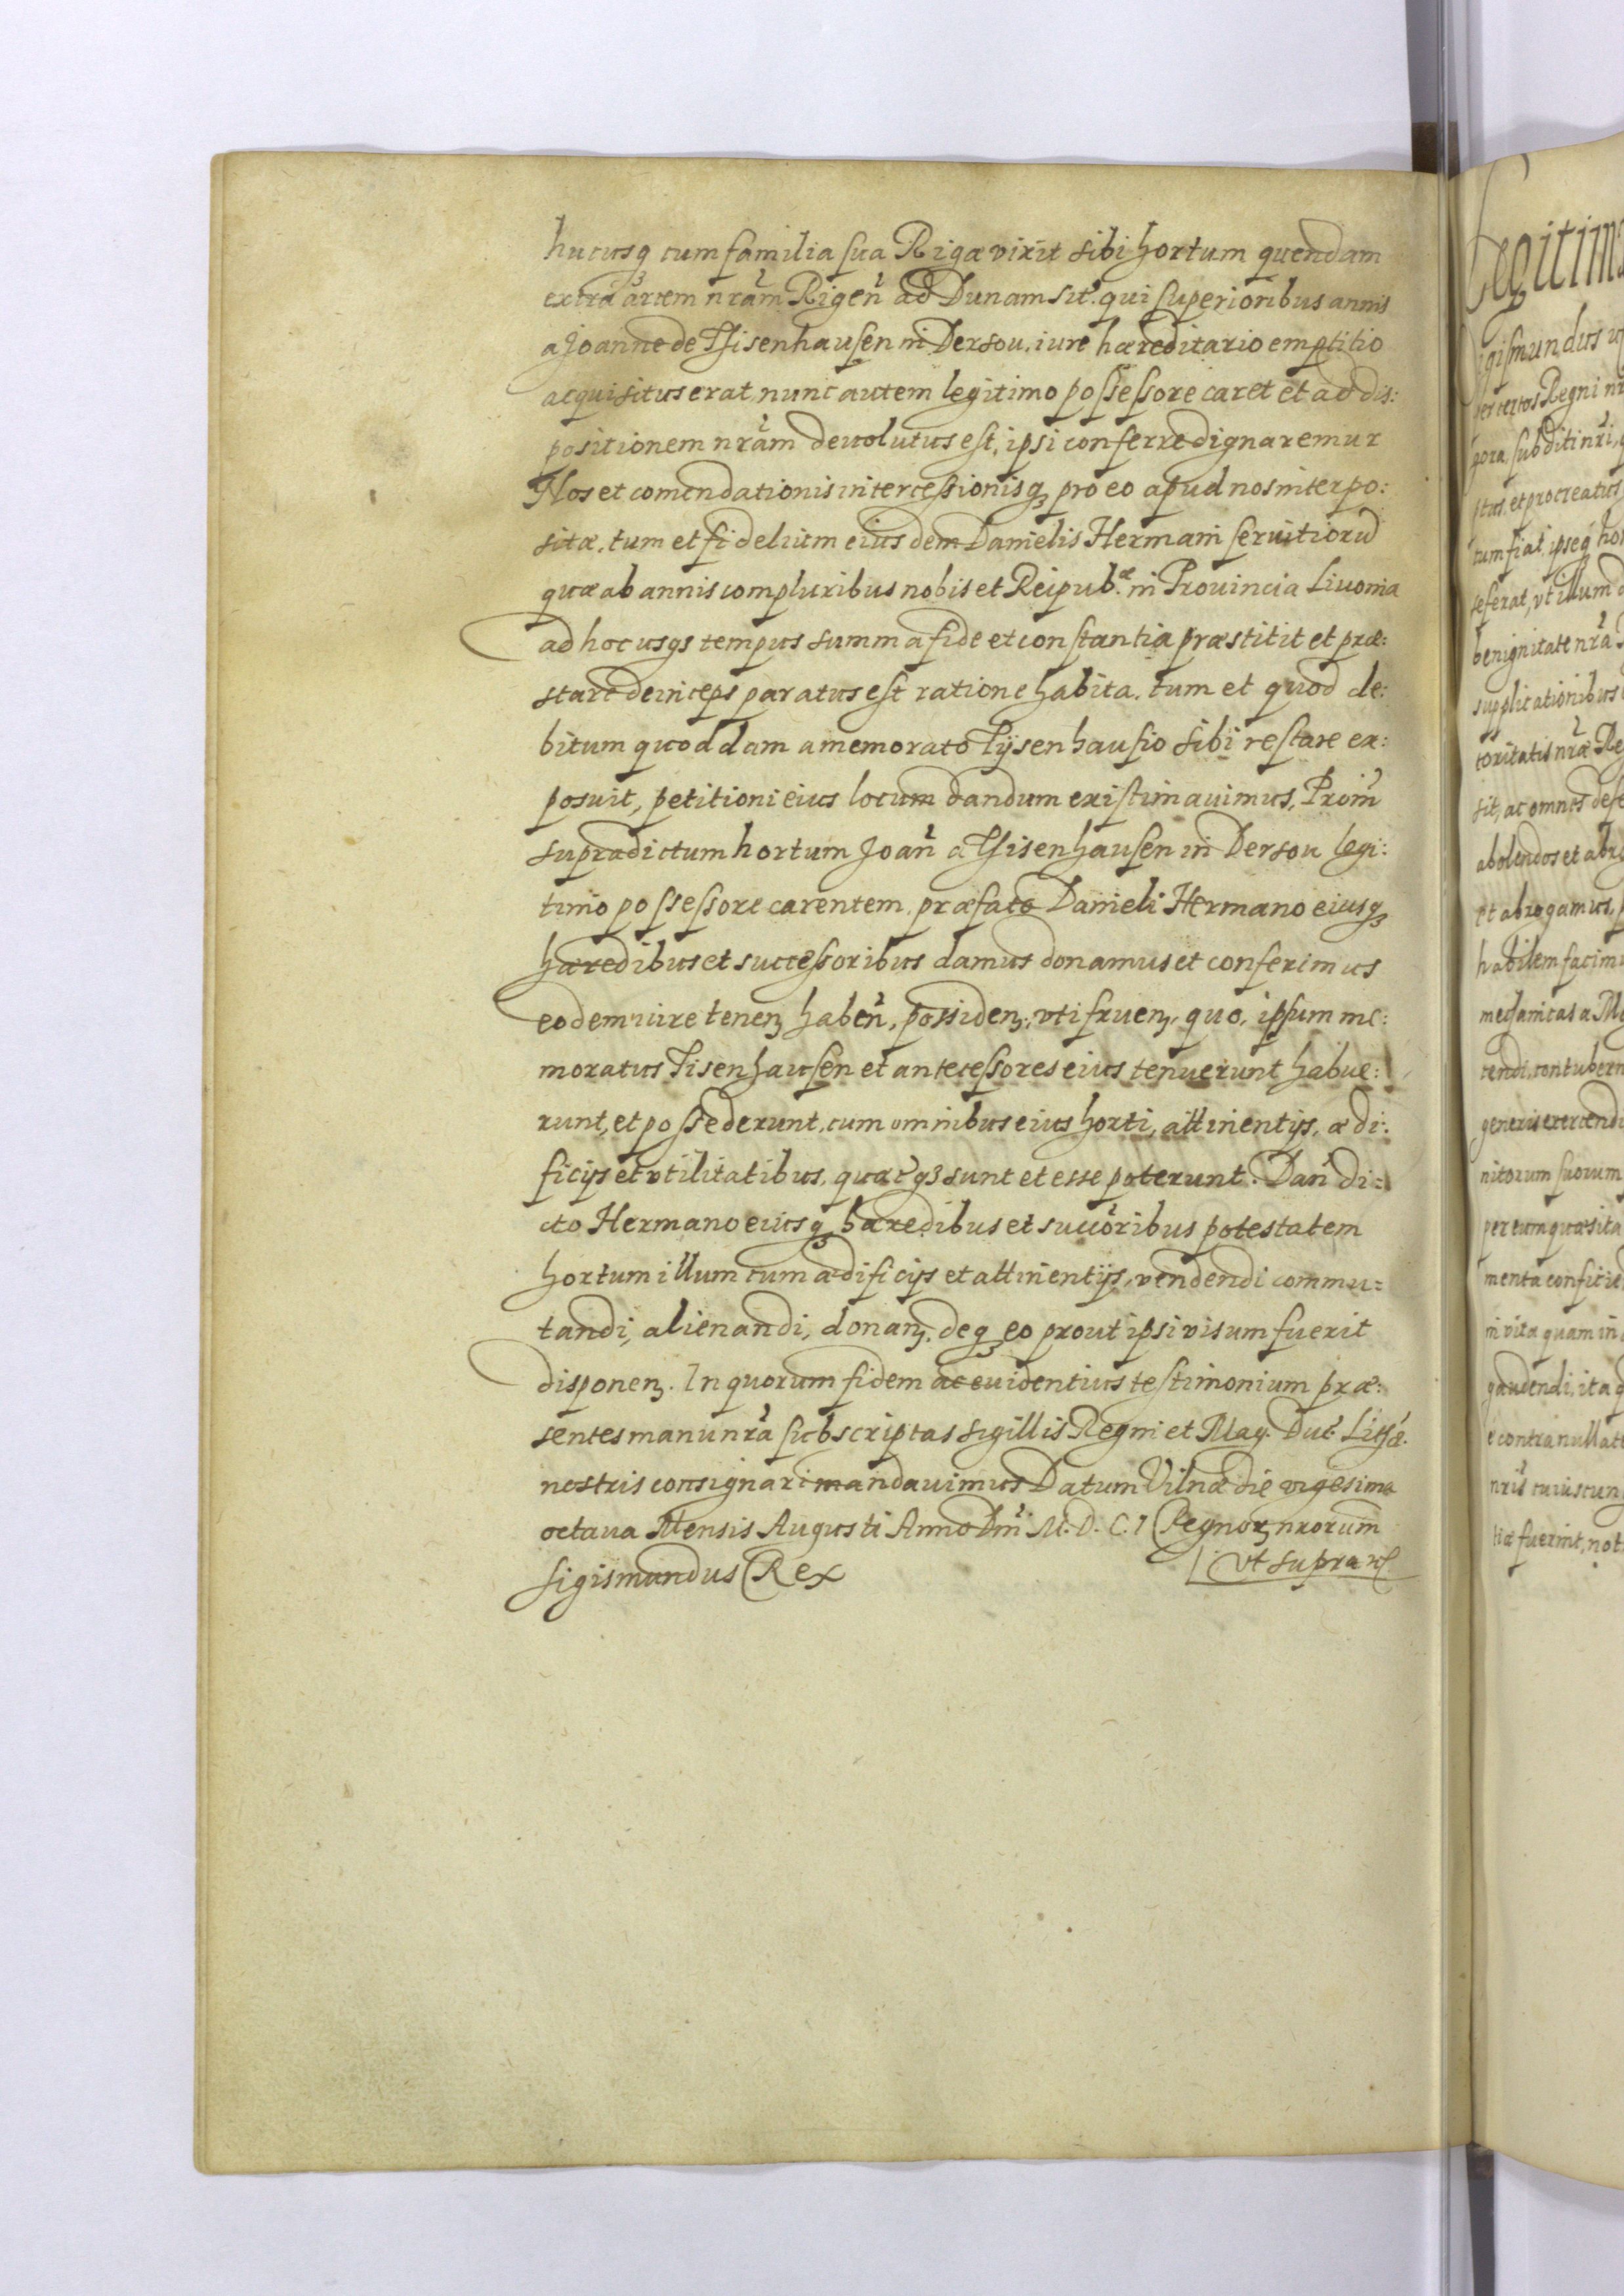 hucusq cum familia sua Rigæ vixit sibi hortum quendam
extra arcem nram Rigen ad Dunam sit. qui superioribus annis
a Joanne de Thisenhausen in Dersou. iure hæreditario emptitio
acquisitus erat, nunc autem legitimo possessore caret et ad dis:
positionem nram deuolutus est, ipsi conferre dignaremur
Nos et comendationis intercessionisq pro eo apud nos interpo:
sitæ. tum et fidelium eiusdem Danielis Hermani seruitiorũ
quæ ab annis compluribus nobis et Reipub.æ in Prouincia Liuonia
ad hoc usqs tempus summa fide et constantia præstitit et præ:
stare deinceps paratus est ratione habita. tum et quod de:
bitum quoddam a memorato Tysenhausio sibi restare ex:
posuit, petitioni eius locum dandum existimauimus, Proin
supradictum hortum Joan a Thisenhausen in Dersou legi:
timo possessore carentem. præfato Danieli Hermano eiusq
hæredibus et successoribus damus donamus et conferimus
eodem iure tenen haben, possiden, vti fruen, quo, ipsum me:
moratus Tisenhausen et antecessores eius tenuerunt habue:
runt, et possederunt, cum omnibus eius horti, attinentijs, ædi:
ficijs et vtilitatibus, quæ sunt et esse poterunt. Dan di:
cto Hermano eiusq hæredibus et succoribus potestatem
hortum illum cum ædificijs et attinentijs, vendendi commu:
tandi, alienandi, donan, deq eo prout ipsi visum fuerit
disponen. In quorum fidem ac euidentius testimonium præ:
sentes manu nra subscriptas sigillis Regni et Mag. Duc. Lithæ.
nostris consignari mandauimus Datum Vilnæ die vigesima
octaua Mensis Augusti Anno Dni M. D. C. I Regnor nrorum
Sigismundus Rex ut supra

Legitim
igismundus
certos Regni
pora, subditi nri,
et procreatus
tum fiat, ipseq
seferat, vt illum
benignitate nra
supplicationibus
toritatis nræ Re
sit, ac omnes
abolendos et
et abrogamus,
habilem facim
mechanicas a
tendi, contubern
generis exercendi
nitorum suorum
per eum quæsita
menta
in vita quam in
gaudendi, ita
e contra
nris
fuerint, not